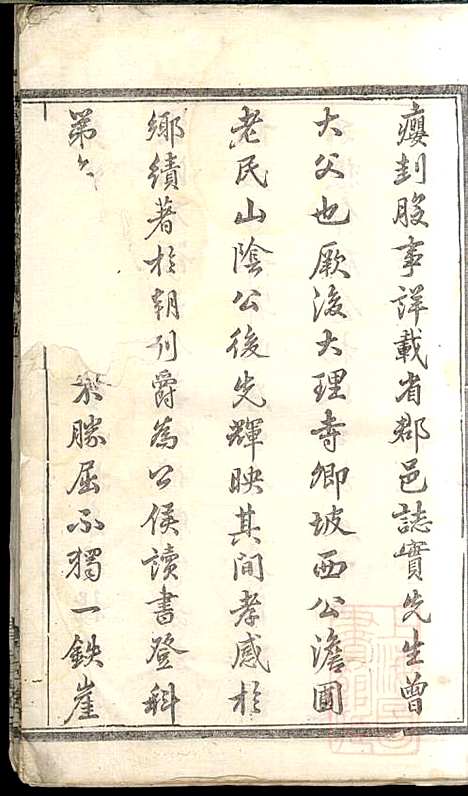 癭刲股事詳載省郡邑誌實先生曾
大父也厥後大理寺卿坡西公澹園
老民山陰公後先輝映其間孝感於
鄉績著於朝列爵為公侯讀書登科
第者不勝屈不獨一鉄崖